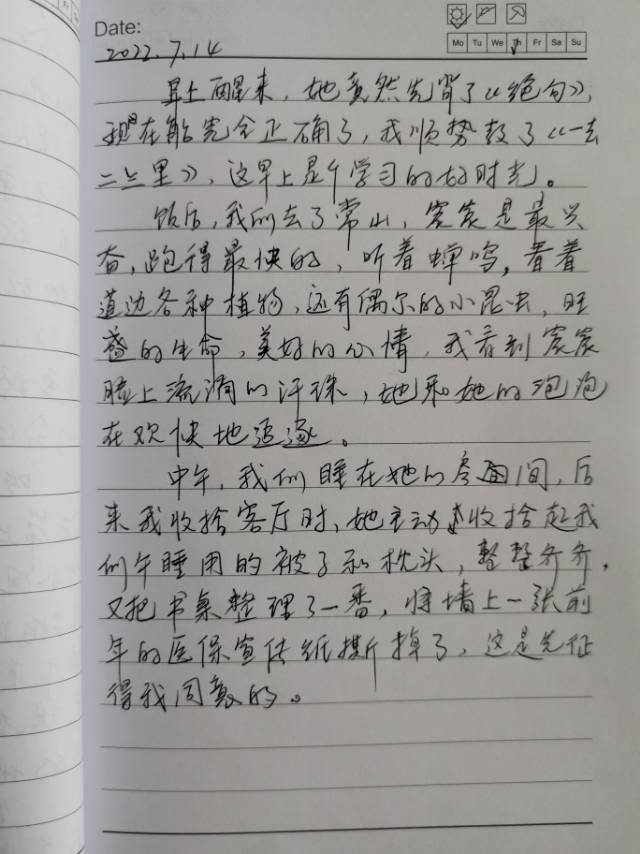 Date:
2022.7.14
Mo Tu We Th Fr Sa Su
早上醒来，她竟然先背了《绝句》，
现在能完全正确了，我顺势教了《一去
二三里》，这早上是个学习的好时光。
饭后，我们去了常山，宸宸是最兴
奋，跑得最快的，听着蝉鸣，看着
道边各种植物，还有偶尔的小昆虫，旺
盛的生命，美好的心情，我看到宸宸
脸上流淌的汗珠，她和她的泡泡
在欢快地追逐。
中午，我们睡在她的房间，后
来我收拾客厅时，她主动收拾起我
们午睡用的被子和枕头，整整齐齐，
又把书桌整理了一番，将墙上一张前
年的医保宣传纸撕掉了，这是先征
得我同意的。